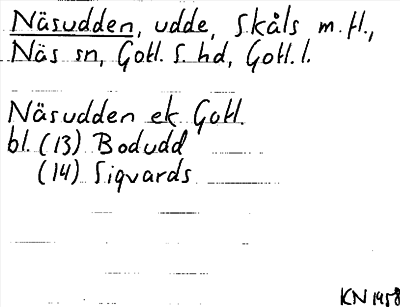 Näsudden, udde, Skåls m.fl.,
Näs sn, Gotl. S. hd, Gotl. l.
Näsudden ek Gotl.
bl. (13) Bodudd
(14) Sigvards
KN 1958